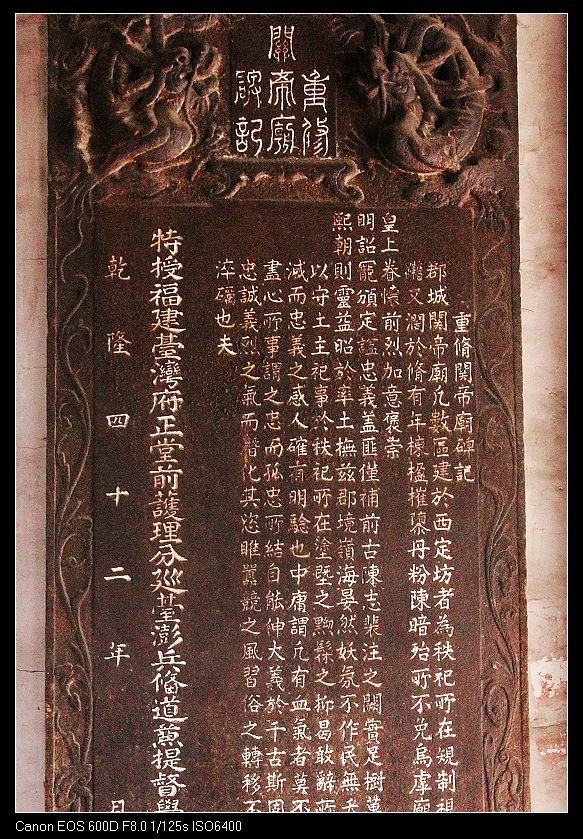 重修
關帝廟
碑記
重脩関帝廟碑記
郡城関帝廟凢數區建於西定坊者為秩祀所在規制視
又濶於脩有年棟楹摧陊丹粉陳暗殆所不免烏虖廟
皇上眷懷前烈加意褒崇
明詔寵頒定謚忠義盖匪僅補前古陳志裴注之闕實足樹萬
熙朝則靈益昭於率土撫兹郡境嶺海晏然妖氛不作民無
以守土主祀事於秩祀所在塗塈之黝髹之抑曷敢辭
減而忠義之感人確有明驗也中庸謂凢有血氣者莫不
盡心所事謂之忠而孤忠所結自能伸大義於千古斯固
忠誠義烈之氣而潛化其恣睢嚚競之風習俗之轉移不
淬礪也夫
特授福建臺灣府正堂前護理分廵臺澎兵俻道兼提督學
乾隆四十二年 月
Canon EOS 600D F8.0 1/125s ISO6400